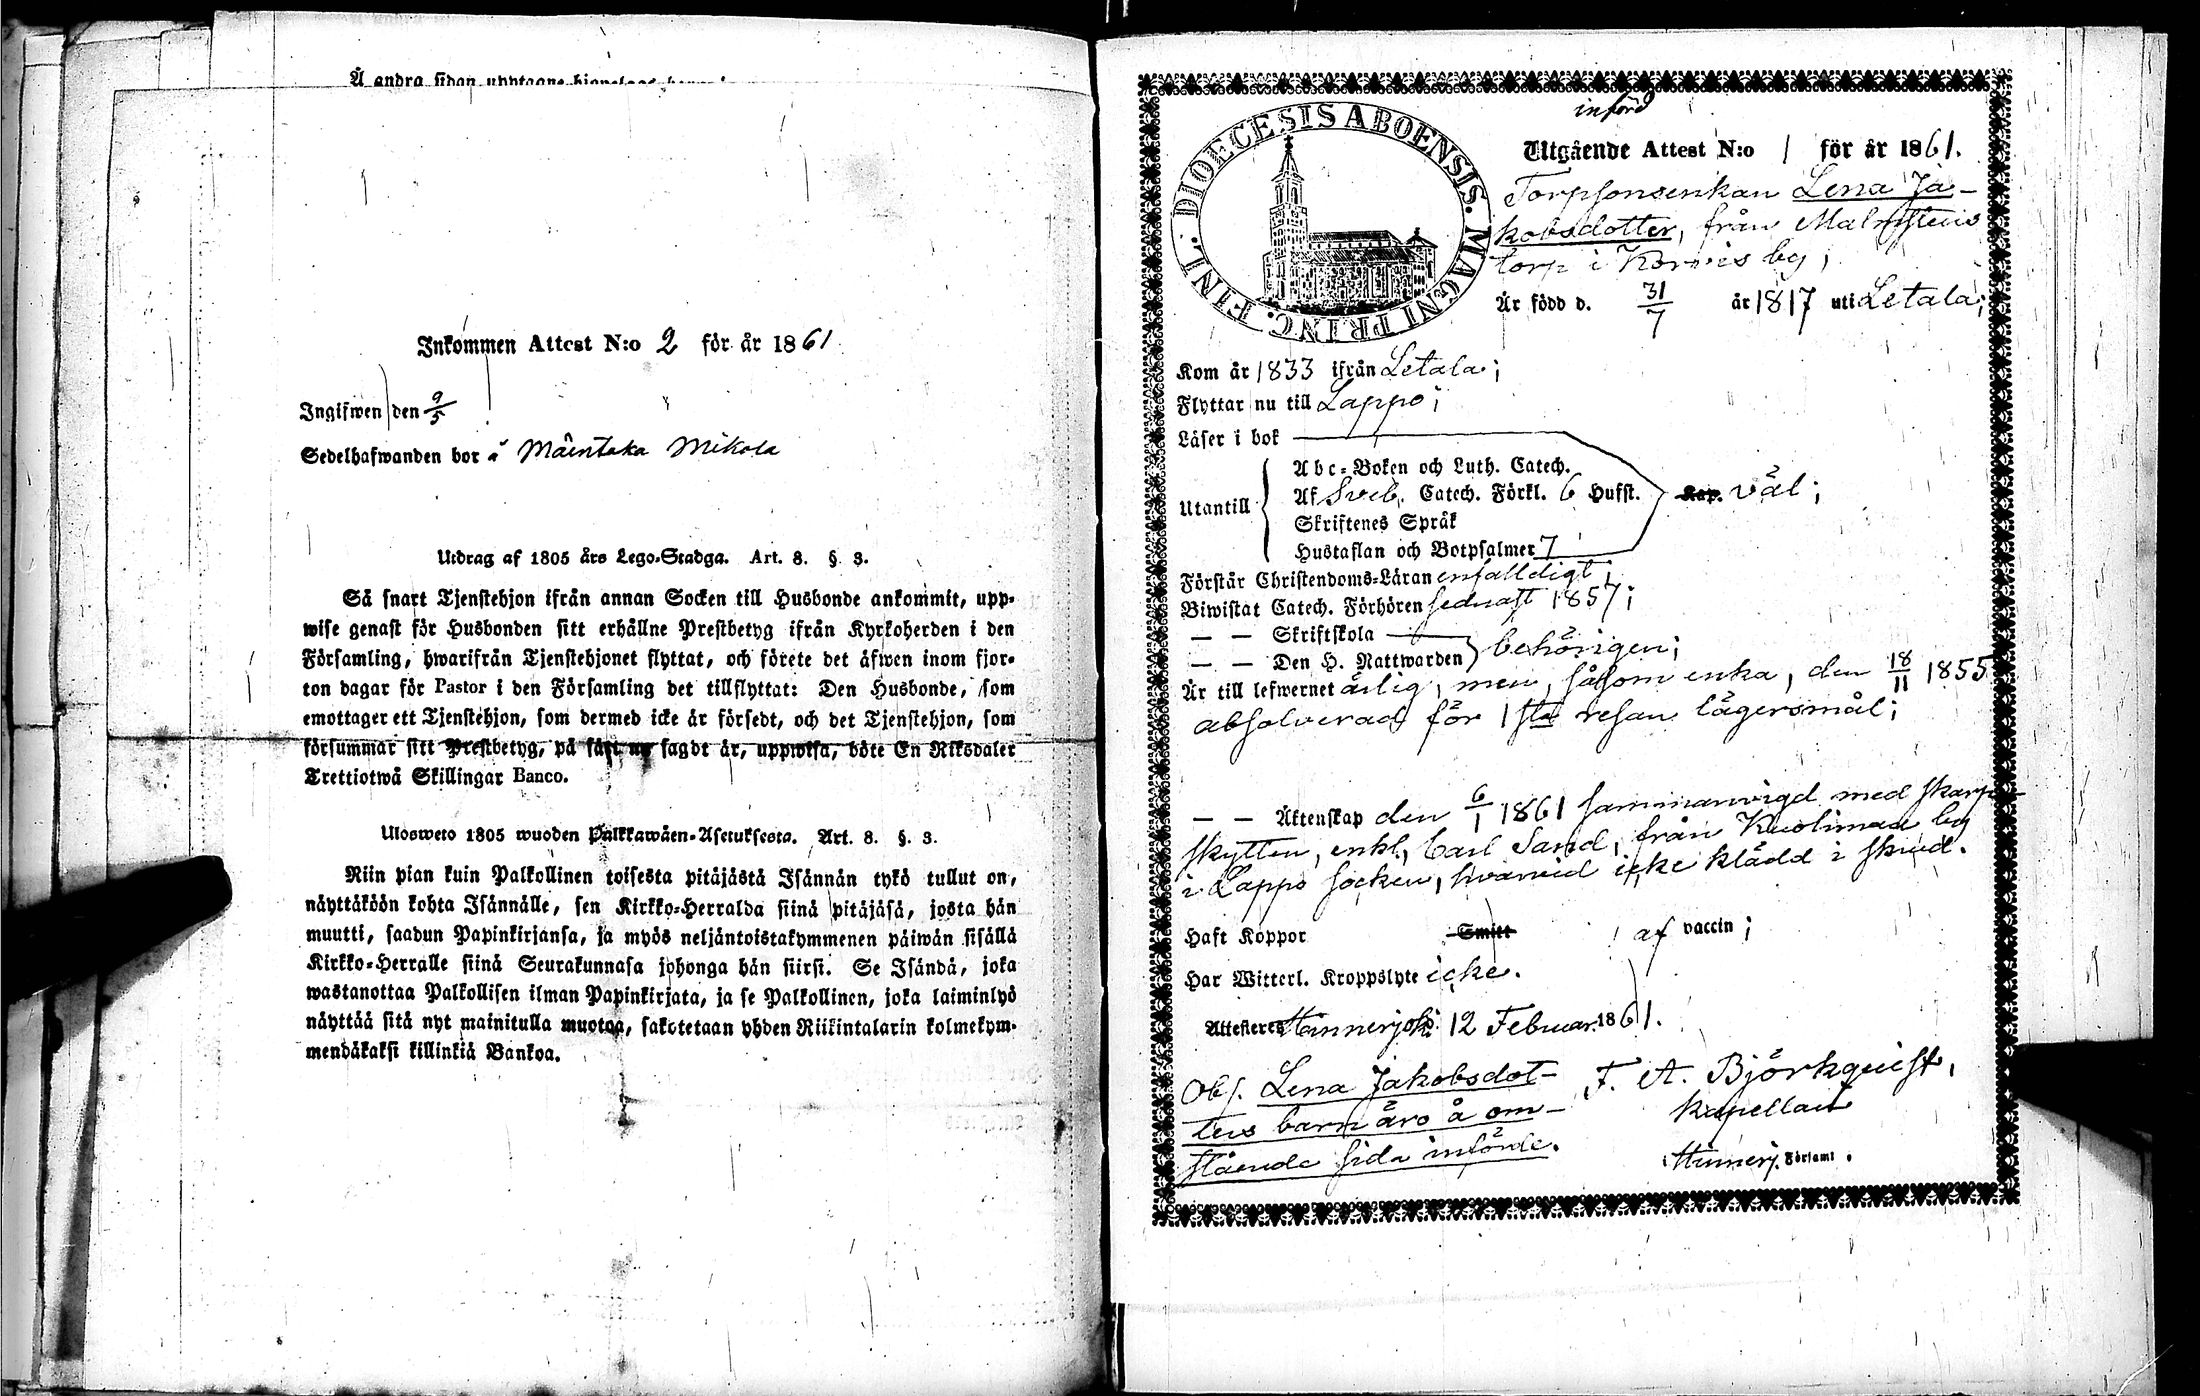 Å andra sidan upptagne
Inkommen Attest N:o 2 för år 1861
Ingifwen den 9/5
Sedelhafwanden bor å Mäentaka Mikola
Utdrag af 1805 års Lego-Stadga. Art. 8. §. 3.
Så snart Tjenstehjon ifrån annan Socken till Husbonde ankommit, upp-
wise genast för Husbonden sitt erhållne Prestbetyg ifrån Kyrkoherden i den
Församling, hwarifrån Tjenstehjonet flyttat, och förete det äfwen inom fjor-
ton dagar för Pastor i den Församling det tillflyttat: Den Husbonde, som
emottager ett Tjenstehjon, som dermed icke är försedt, och det Tjenstehjon, som
försummar sitt Prestbetyg, på sätt nu sagdt är, uppwisa, böte En Riksdaler
Trettiotwå Skillingar Banco.
Ulosweto 1805 wuoden Palkkawäen-Asetuksesta. Art. 8. §. 3.
Niin pian kuin Palkollinen toisesta pitäjästä Isännän tykö tullut on,
näyttäköön kohta Isännälle, sen Kirkko-Herralda siinä pitäjäsä, josta hän
muutti, saadun Papinkirjansa, ja myös neljäntoistakymmenen päiwän sisällä
Kirkko-Herralle siinä Seurakunnasa johonga hän siirsi. Se Isändä, joka
wastanottaa Palkollisen ilman Papinkirjata, ja se Palkollinen, joka laiminlyö
näyttää sitä nyt mainitulla muotoa, sakotetaan yhden Riikintalarin kolmekym-
mendäkaksi killinkiä Bankoa.
DIOECESIS ABOENSIS. MAGNI PRINC. FINL.
införd
Utgående Attest N:o 1 för år 1861.
Torpsonenkan Lena Ja-
kobsdotter, från Malmstens
torp i Korvis by;
Är född d. 31/7 år 1817 uti Letala;
Kom år 1833 ifrån Letala;
Flyttar nu till Lappo;
Läser i bok
Abc-Boken och Luth. Catech.
Utantill Af Sveb. Catech. Förkl. 6 Hufst. Kap. väl;
Skriftenes Språk
Hustaflan och Botpsalmer 7
Förstår Christendoms-Läran enfalldigt;
Biwistat Catech. Förhören sednast 1857;
— — Skriftskola
— — Den H. Nattwarden behörigen;
Är till lefwernet ärlig, men, såsom enka, den 18/11 1855
absolverad för 1sta resan lägersmål;
— — Äktenskap den 6/1 1861 sammanvigd med skarp-
skytten, enkl. Carl Sand, från Kuolimaa by
i Lappo socken, hvarvid icke klädd i skrud.
Haft Koppor Smitt af vaccin;
Har Witterl. Kroppslyte icke.
Attesteres Hinnerjoki 12 Februar. 1861.
Obs. Lena Jakobsdot-
ters barn äro å om-
stående sida införde.
F. A. Björkqvist,
Kapellan
Hinnerj. Församl.